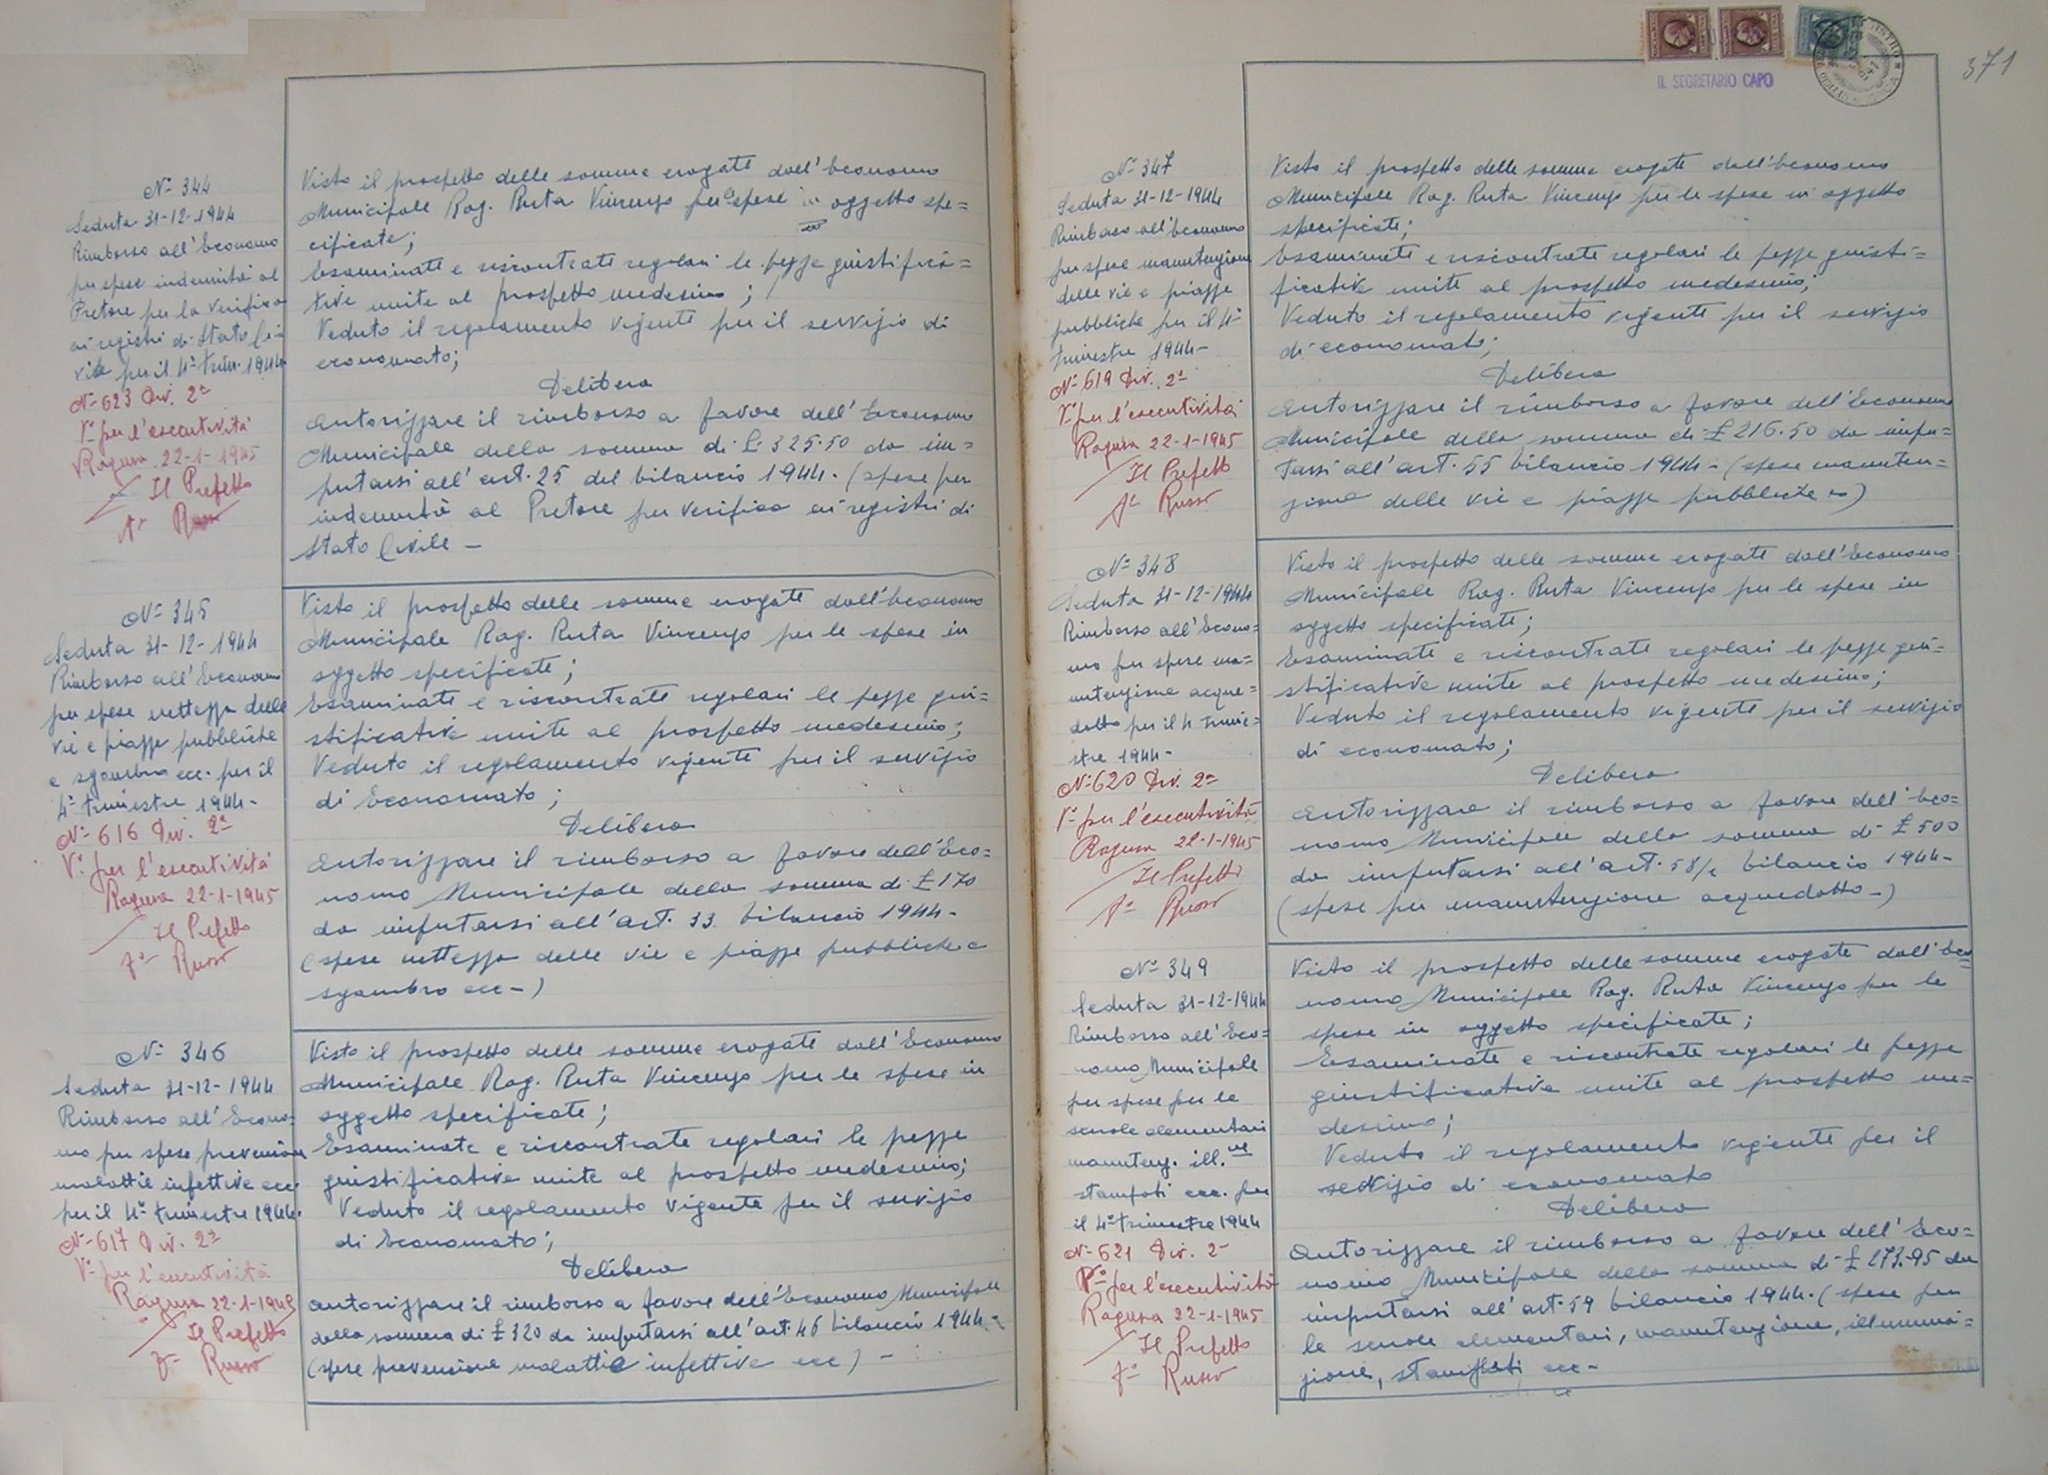 N° 344
Seduta 31-12-1944
Rimborso all'Economo
per spese indennità al
Pretore per la verifica
ai registri di Stato Ci=
vile per il 4° trim. 1944
N° 623 Div. 2ª
V° per l'esecutività
Ragusa 22-1-1945
Il Prefetto
f° Russo
Visto il prospetto delle somme erogate dall'Economo
Municipale Rag. Ruta Vincenzo per spese in oggetto spe=
cificate;
Esaminate e riscontrate regolari le pezze giustifica=
tive unite al prospetto medesimo;
Veduto il regolamento vigente per il servizio di
economato;
Delibera
Autorizzare il rimborso a favore dell'Economo
Municipale della somma di £ 325.50 da im=
putarsi all'art. 25 del bilancio 1944. (spese per
indennità al Pretore per verifica ai registri di
Stato Civile -
N° 345
Seduta 31-12-1944
Rimborso all'Economo
per spese nettezza delle
vie e piazze pubbliche
e sgombro ecc. per il
4° trimestre 1944-
N° 616 Div. 2ª
V° per l'esecutività
Ragusa 22-1-1945
Il Prefetto
f° Russo
Visto il prospetto delle somme erogate dall'Economo
Municipale Rag. Ruta Vincenzo per le spese in
oggetto specificate;
Esaminate e riscontrate regolari le pezze giu=
stificative unite al prospetto medesimo;
Veduto il regolamento vigente per il servizio
di Economato;
Delibera
Autorizzare il rimborso a favore dell'Eco=
nomo Municipale della somma di £ 170
da imputarsi all'art. 33 bilancio 1944-
(spese nettezza delle vie e piazze pubbliche e
sgombro ecc-)
N° 346
Seduta 31-12-1944
Rimborso all'Econo=
mo per spese prevenzione
malattie infettive ecc.
per il 4° trimestre 1944.
N° 617 Div. 2ª
V° per l'esecutività
Ragusa 22-1-1945
Il Prefetto
f° Russo
Visto il prospetto delle somme erogate dall'Economo
Municipale Rag. Ruta Vincenzo per le spese in
oggetto specificate;
Esaminate e riscontrate regolari le pezze
giustificative unite al prospetto medesimo;
Veduto il regolamento vigente per il servizio
di Economato;
Delibera
Autorizzare il rimborso a favore dell'Economo Municipale
della somma di £ 320 da imputarsi all'art. 46 bilancio 1944-
(spese prevenzione malattie infettive ecc) -
IL SEGRETARIO CAPO
371
N° 347
Seduta 31-12-1944
Rimborso all'economo
per spese manutenzione
delle vie e piazze
pubbliche per il 4°
trimestre 1944-
N° 619 Div. 2ª
V° per l'esecutività
Ragusa 22-1-1945
Il Prefetto
f° Russo
Visto il prospetto delle somme erogate dall'Economo
Municipale Rag. Ruta Vincenzo per le spese in oggetto
specificate;
Esaminate e riscontrate regolari le pezze giusti=
ficative unite al prospetto medesimo;
Veduto il regolamento vigente per il servizio
di economato;
Delibera
Autorizzare il rimborso a favore dell'Economo
Municipale della somma di £ 216.50 da impu=
tarsi all'art. 55 bilancio 1944- (spese manuten=
zione delle vie e piazze pubbliche -)
N° 348
Seduta 31-12-1944
Rimborso all'Econo=
mo per spese ma=
nutenzione acque=
dotto per il 4 trime=
stre 1944-
N° 620 Div. 2ª
V° per l'esecutività
Ragusa 22-1-1945
Il Prefetto
f° Russo
Visto il prospetto delle somme erogate dall'Economo
Municipale Rag. Ruta Vincenzo per le spese in
oggetto specificate;
Esaminate e riscontrate regolari le pezze giu=
stificative unite al prospetto medesimo;
Veduto il regolamento vigente per il servizio
di economato;
Delibera
Autorizzare il rimborso a favore dell'Eco=
nomo Municipale della somma di £ 500
da imputarsi all'art. 58/2 bilancio 1944-
(spese per manutenzione acquedotto -)
N° 349
Seduta 31-12-1944
Rimborso all'Eco=
nomo Municipale
per spese per le
scuole elementari
manuten. ill.ne
stampati ecc. per
il 4° trimestre 1944
N° 621 Div. 2ª
V° per l'esecutività
Ragusa 22-1-1945
Il Prefetto
f° Russo
Visto il prospetto delle somme erogate dall'Eco=
nomo Municipale Rag. Ruta Vincenzo per le
spese in oggetto specificate;
Esaminate e riscontrate regolari le pezze
giustificative unite al prospetto me=
desimo;
Veduto il regolamento vigente per il
servizio di economato
Delibera
Autorizzare il rimborso a favore dell'Eco=
nomo Municipale della somma di £ 273.95 da
imputarsi all'art. 59 bilancio 1944. (spese per
le scuole elementari, manutenzione, illumina=
zione, stampati ecc-